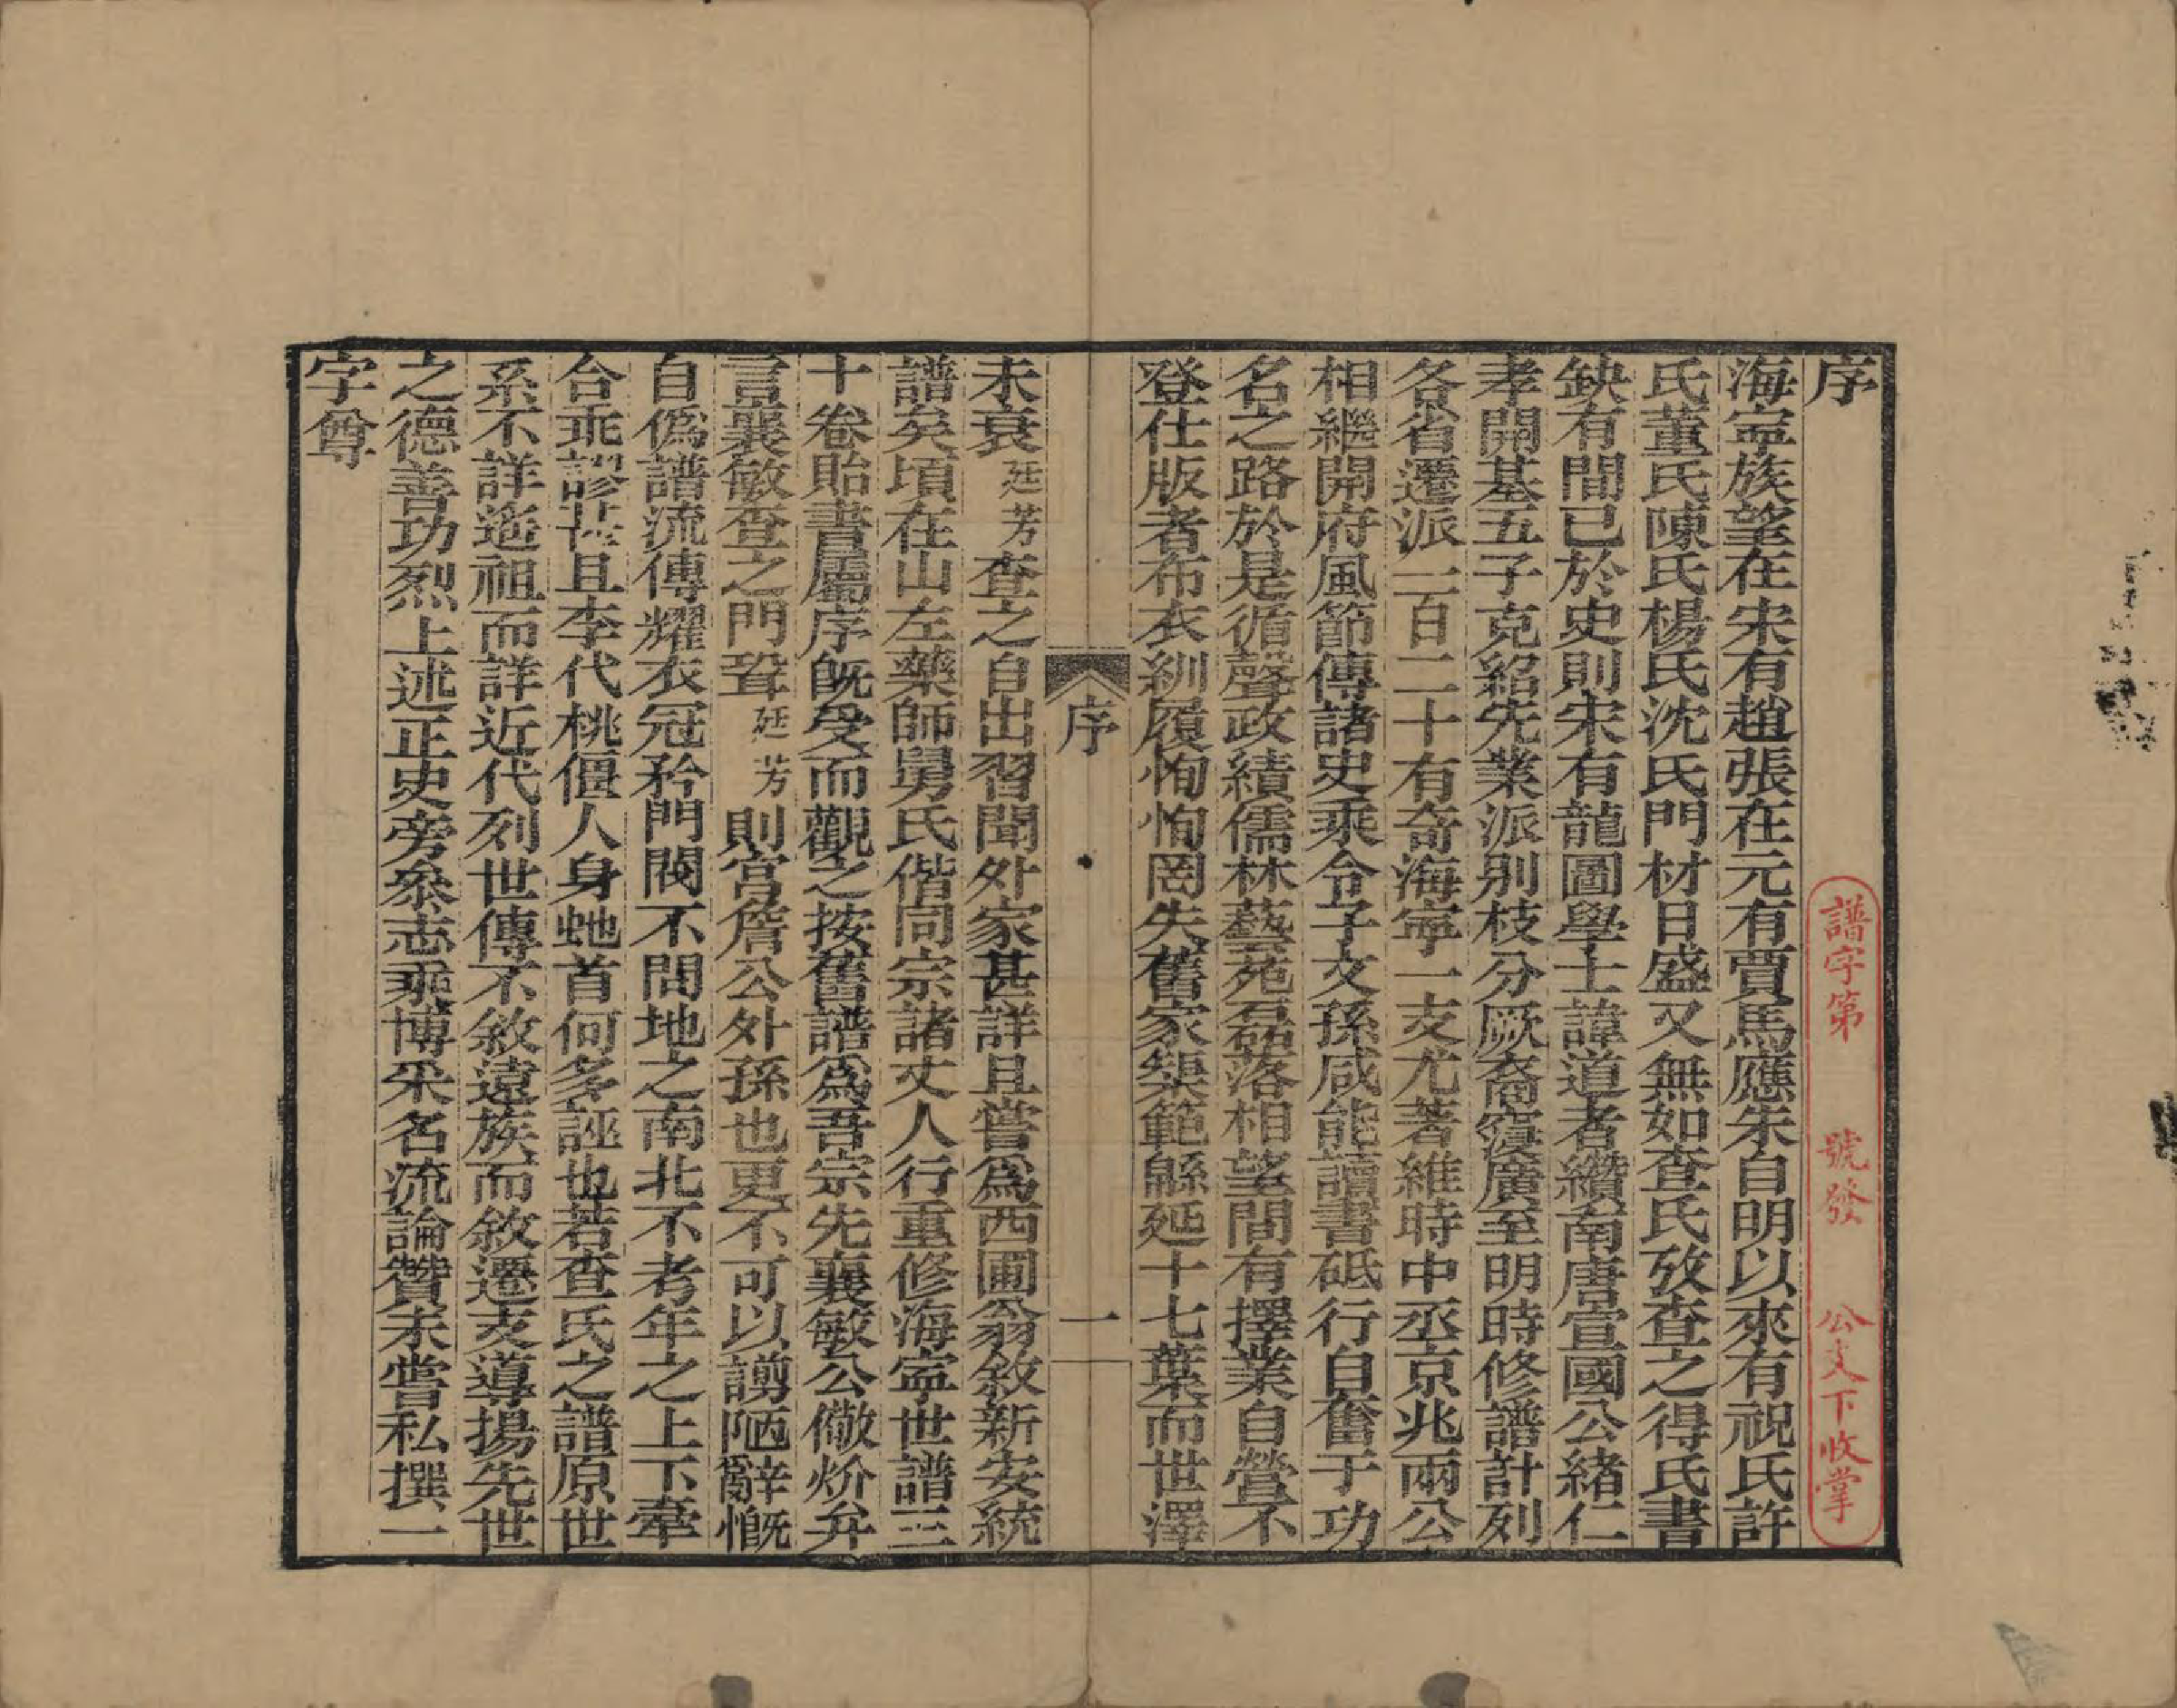 序
譜字第　號發　公支下收掌
海寧族望在宋有趙張在元有賈馬應朱自明以來有祝氏許
氏董氏陳氏楊氏沈氏門材日盛又無如查氏攷查之得氏書
缺有間已於史則宋有龍圖學士諱道者纘南唐宣國公緒仁
孝開基五子克紹先業派別枝分厥裔寖廣至明時修譜計列
各省遷派一百二十有奇海寧一支尤著維時中丞京兆兩公
相繼開府風節傳諸史乘令子文孫咸能讀書砥行自奮于功
名之路於是循聲政績儒林藝苑磊落相望間有擇業自營不
登仕版者布衣紃履恂恂罔失舊家榘範緜延十七葉而世澤
序　一
未衰廷芳查之自出習聞外家甚詳且嘗爲西圃翁敘新安統
譜矣頃在山左藥師舅氏偕同宗諸丈人行重修海寧世譜三
十卷貽書屬序旣受而觀之按舊譜爲吾宗先襄敏公儆炌弁
言襄敏查之門壻廷芳則宮詹公外孫也更不可以譾陋辭慨
自僞譜流傳耀衣冠矜門閥不問地之南北不考年之上下牽
合乖謬甚且李代桃僵人身虵首何多誣也若查氏之譜原世
系不詳遙祖而詳近代列世傳不敘遠族而敘遷支導揚先世
之德善功烈上述正史旁叅志乘博采名流論贊未嘗私撰一
字尊